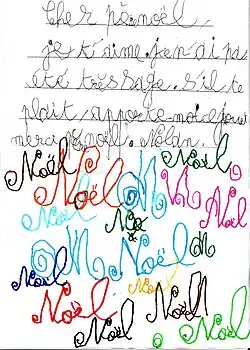 Cher père noël,
je t'aime. j'en ai pas
été très sage. s'il te
plait, apporte moi
merci noël. Nolan.
Noël
Noël
Noël
Noël
Noël
N
N
Noël
Noël
N
Noël
Noël
Noël
Noël
Noël
Noël
Noël